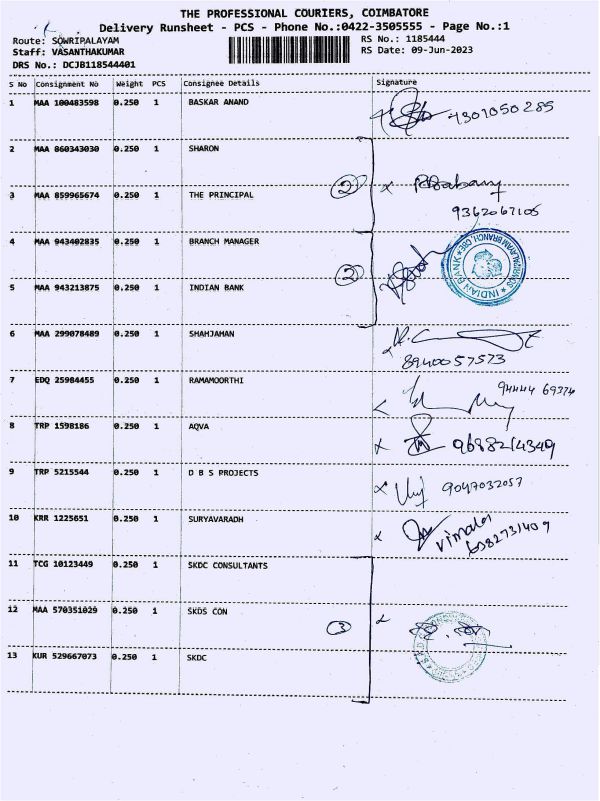 THE PROFESSIONAL COURIERS, COIMBATORE
Delivery Runsheet - PCS - Phone No.:0422-3505555 - Page No.:1
Route: SOWRIPALAYAM RS No.: 1185444
Staff: VASANTHAKUMAR RS Date: 09-Jun-2023
DRS No.: DCJB118544401
S No Consignment No Weight PCS Consignee Details Signature
1 MAA 100483598 0.250 1 BASKAR ANAND 7301050285
2 MAA 860343030 0.250 1 SHARON
3 MAA 859965674 0.250 1 THE PRINCIPAL 2 x
9362067105
4 MAA 943402835 0.250 1 BRANCH MANAGER
2 INDIAN BANK
5 MAA 943213875 0.250 1 INDIAN BANK
6 MAA 299078489 0.250 1 SHAHJAHAN
8940057573
7 EDQ 25984455 0.250 1 RAMAMOORTHI 94444 69374
8 TRP 1598186 0.250 1 AQVA x 9688214349
9 TRP 5215544 0.250 1 D B S PROJECTS x 9047032057
10 KRR 1225651 0.250 1 SURYAVARADH x Vimala
6382731409
11 TCG 10123449 0.250 1 SKDC CONSULTANTS
12 MAA 570351029 0.250 1 SKDS CON 3 x
13 KUR 529667073 0.250 1 SKDC